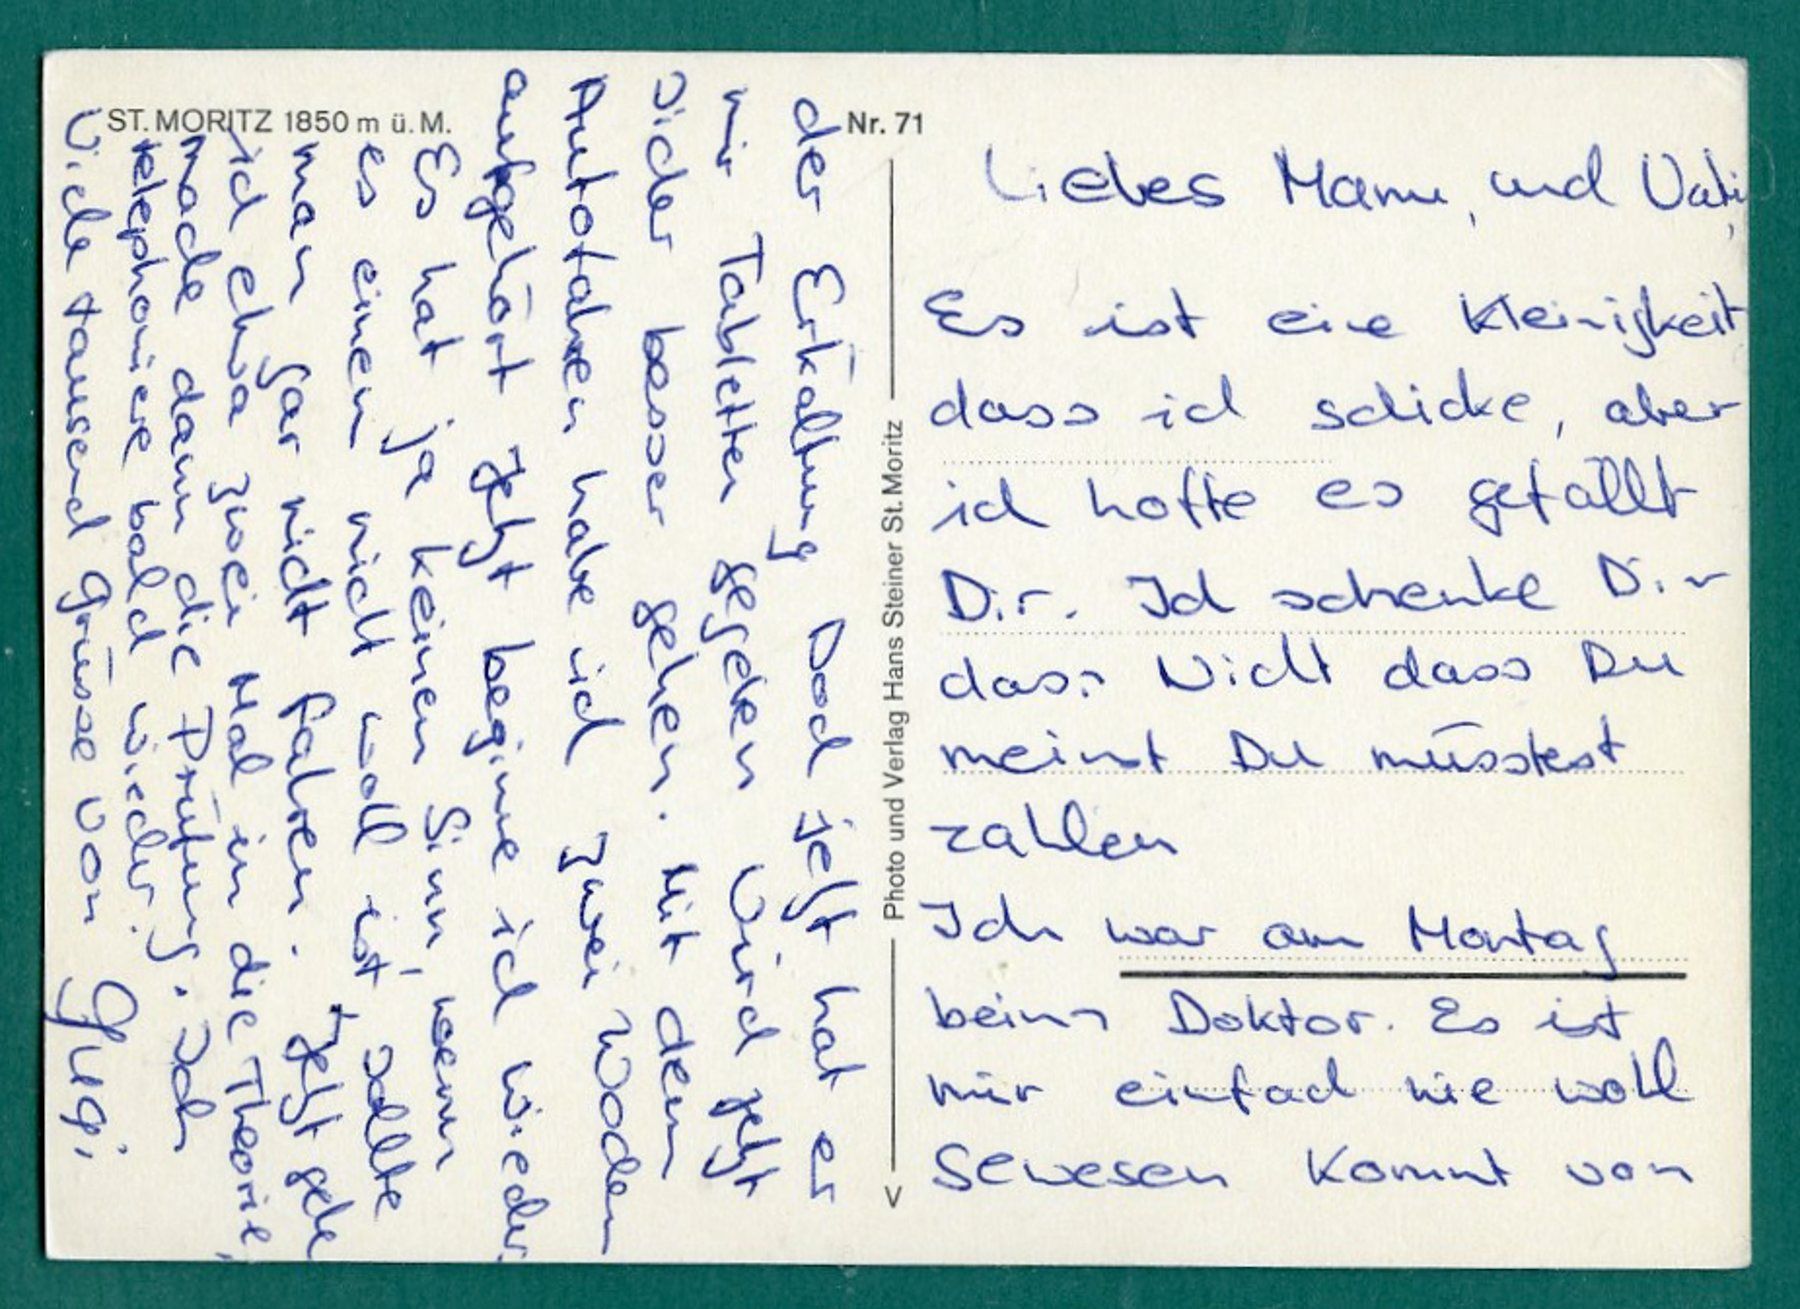 ST. MORITZ 1850 m ü. M.
Nr. 71
Photo und Verlag Hans Steiner St. Moritz
Liebes Mami, und Vati,
Es ist eine Kleinigkeit
dass ich schicke, aber
ich hoffe es gefällt
Dir. Ich schenke Dir
das. Nicht dass Du
meinst Du müsstest
zahlen
Ich war am Montag
beim Doktor. Es ist
mir einfach nie wohl
gewesen kommt von
der Erkältung Doch jetzt hat er
mir Tabletten gegeben Wird jetzt
sicher besser gehen. Mit dem
Autofahren habe ich zwei Wochen
aufgehört Jetzt beginne ich wieder.
Es hat ja keinen Sinn, wenn
es einem nicht wohl ist, sollte
man gar nicht fahren. Jetzt gehe
ich etwa zwei Mal in die Theorie,
mache dann die Prüfung. Ich
telephoniere bald wieder.
Viele tausend Grüsse von Gugi